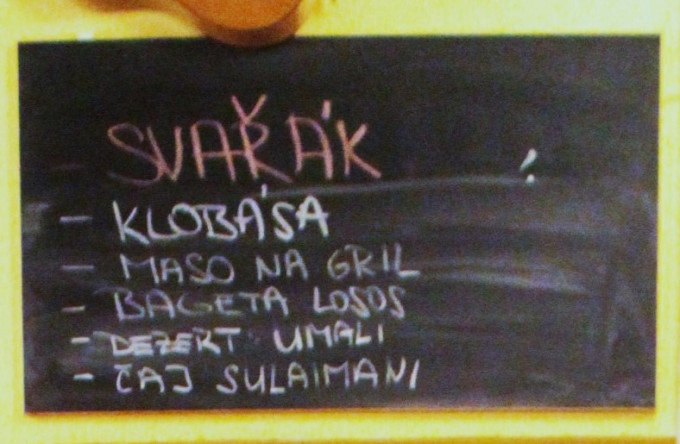 - SVAŘÁK !
- KLOBÁSA
- MASO NA GRIL
- BAGETA LOSOS
- DEZERT UMALI
- ČAJ SULAIMANI